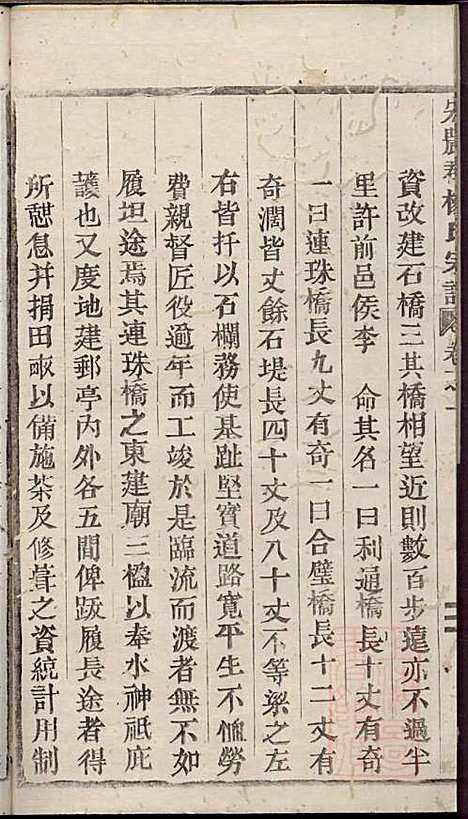 弘農郡楊氏宗譜 卷之一
資改建石橋三其橋相望近則數百步遠亦不過半
里許前邑侯李 命其名一曰利通橋長十丈有奇
一曰連珠橋長九丈有奇一曰合璧橋長十二丈有
奇濶皆丈餘石堤長四十丈及八十丈不等梁之左
右皆扞以石欄務使基趾堅實道路寬平生不恤勞
費親督匠役逾年而工竣於是臨流而渡者無不如
履坦途焉其連珠橋之東建廟三楹以奉水神祇庇
護也又度地建郵亭內外各五間俾跋履長途者得
所憇息并捐田畞以備施茶及修葺之資統計用制